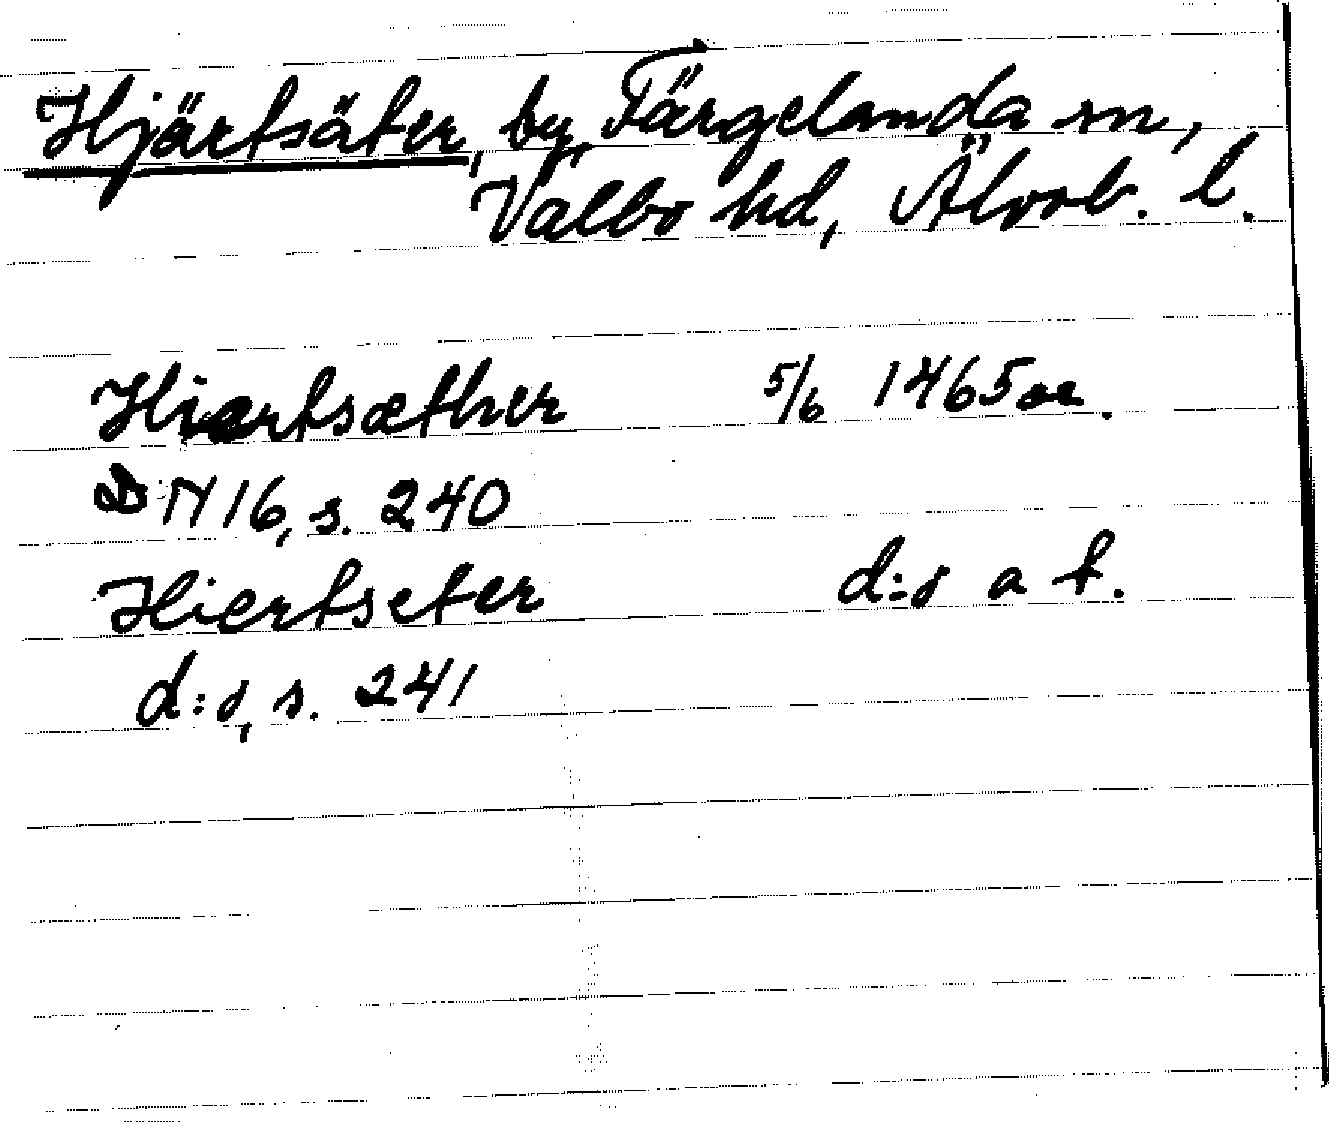 Hjärtsäter, by, Färgelanda sn,
Valbo hd, Älvsb. l.
Hiærtsæther 5/6 1465 or.
DN 16, s. 240
Hiertseter d:o a t.
d:o, s. 241